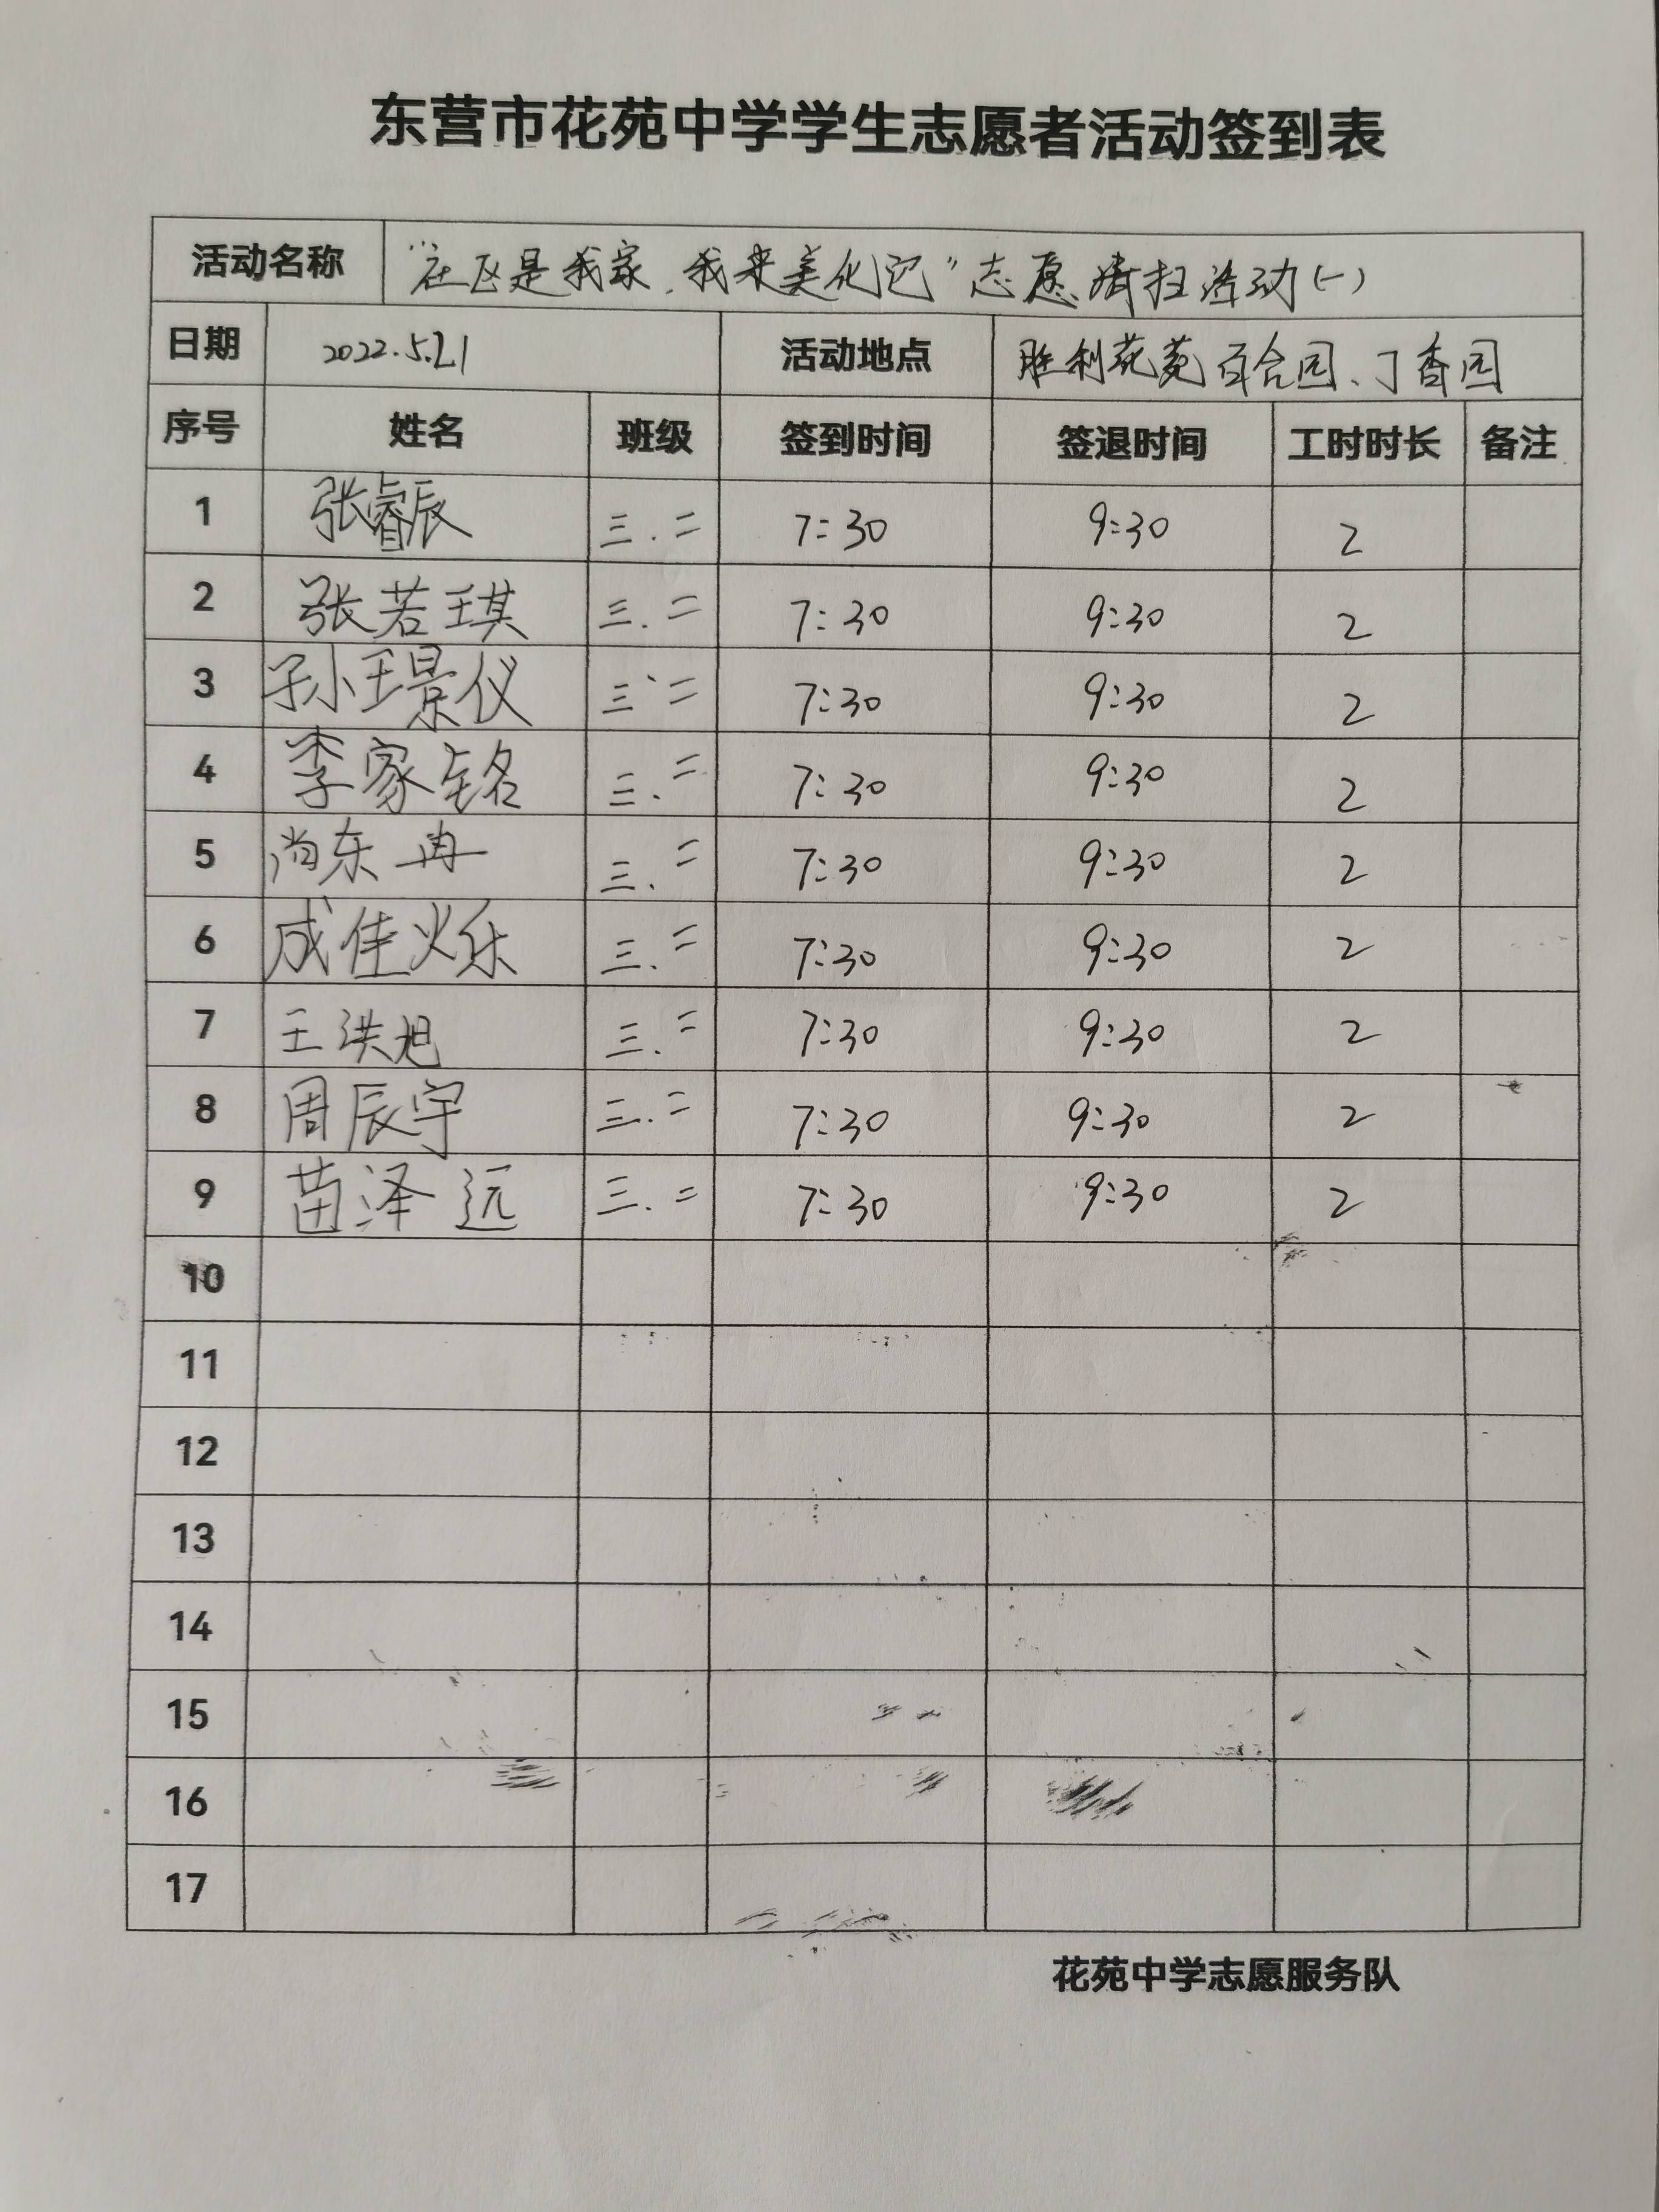 东营市花苑中学学生志愿者活动签到表
活动名称 “社区是我家、我来美化它”志愿清扫活动(一)
日期 2022.5.21 活动地点 胜利花苑百合园、丁香园
序号 姓名 班级 签到时间 签退时间 工时时长 备注
1 张睿辰 三.二 7:30 9:30 2
2 张若琪 三.二 7:30 9:30 2
3 孙璟仪 三、二 7:30 9:30 2
4 李家铭 三.二 7:30 9:30 2
5 尚东冉 三.二 7:30 9:30 2
6 成佳烁 三.二 7:30 9:30 2
7 王洪旭 三.二 7:30 9:30 2
8 周辰宇 三.二 7:30 9:30 2
9 苗泽远 三.二 7:30 9:30 2
10
11
12
13
14
15
16
17
花苑中学志愿服务队